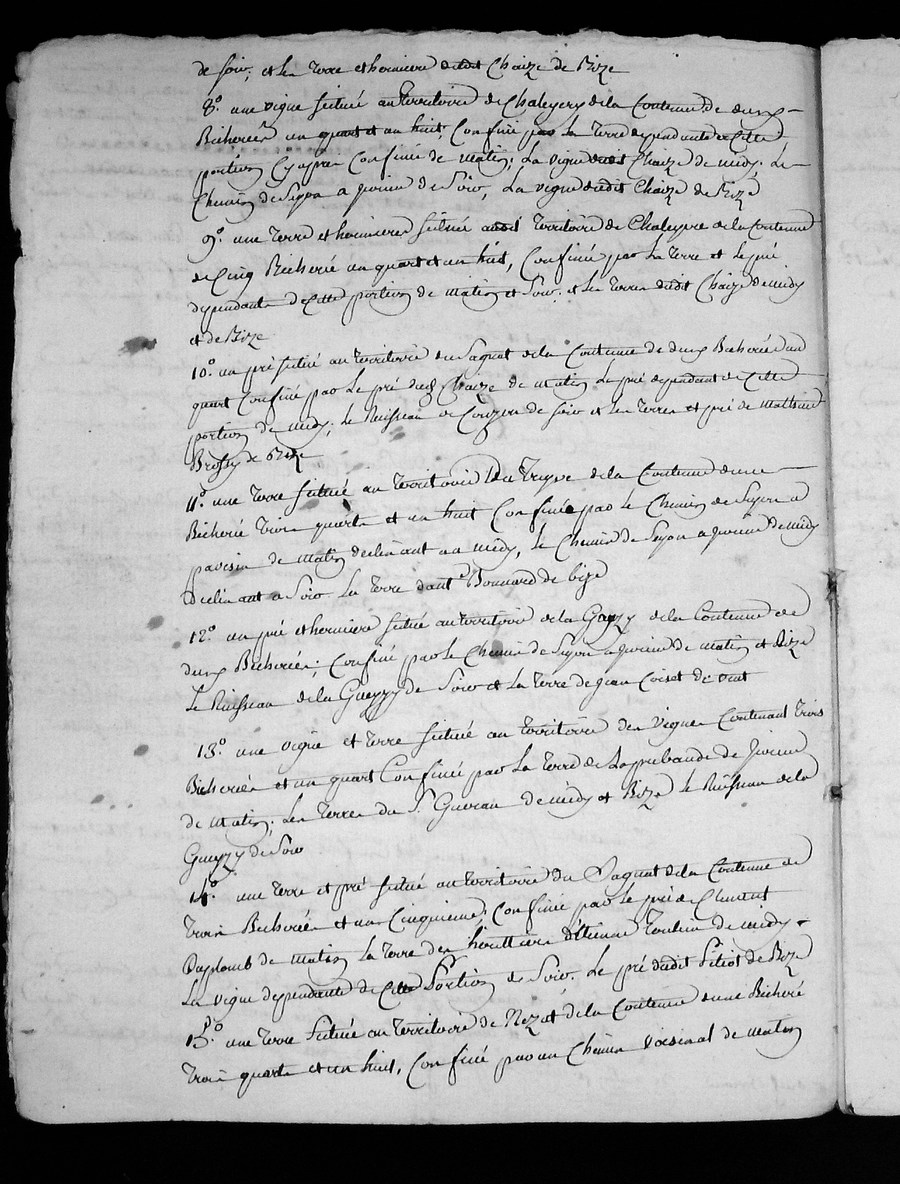 de soir, et les terre et hermiere dudit Chaize de Bize
8.° une vigne située au territoire de Chaleyere de la Contenue de deux
Bicherées un quart et un huit, Confinée par la terre dependante de Cette
portion Cy après Confinée de matin; la vigne dudit Chaize de midy; le
Chemin de Sijon a Jurieux de Soir, la vigne dudit Chaize de Bize
9.° une terre et hermieres située audit territoire de Chaleyere de la Contenue
de Cinq Bicherée un quart et un huit, Confinée par la terre et le pré
dependants de Cette portion de matin et Soir, et les terres dudit Chaize de midy
et de Bize
10.° un pré situé au territoire du Sagnat de la Contenue de deux Bicherées un
quart Confiné par le pré dudit Chaize de matin le pré dependant de Cette
portion de midy; le Ruisseau de de Soir et les terres et pré de Mathieu
Brossy de Bize
11.° une terre située au territoire du de la Contenue d'une
Bicherée trois quarts et un huit Confinée par le Chemin de a
de matin declinant a midy, le Chemin de a Jurieux de midy
declinant a Soir la terre d'ant.e Bonnard de bize
12.° un pré et hermiere situé au territoire de la de la Contenue de
deux Bicherées; Confiné par le Chemin de a Jurieux de matin et Bize
le Ruisseau de la de Soir et la terre de Jean Coiset de vent
13.° une vigne et terre située au territoire des vignes Contenant trois
Bicherées et un quart Confinée par la terre de la prebande de Jurieux
de matin; les terres du S.r de midy et Bize le Ruisseau de la
de Soir
14.° une terre et pré situé au territoire du Sagnat de la Contenue de
trois Bicherées et un Cinquieme; Confinée par le pré de Clement
Duplomb de matin la terre des heritiers d'Etienne de midy
la vigne dependante de Cette Portion de Soir. le pré dudit de Bize
15.° une terre située au territoire de de la Contenue d'une Bicheré
trois quarts et un huit, Confiné par un Chemin voisinal de matin